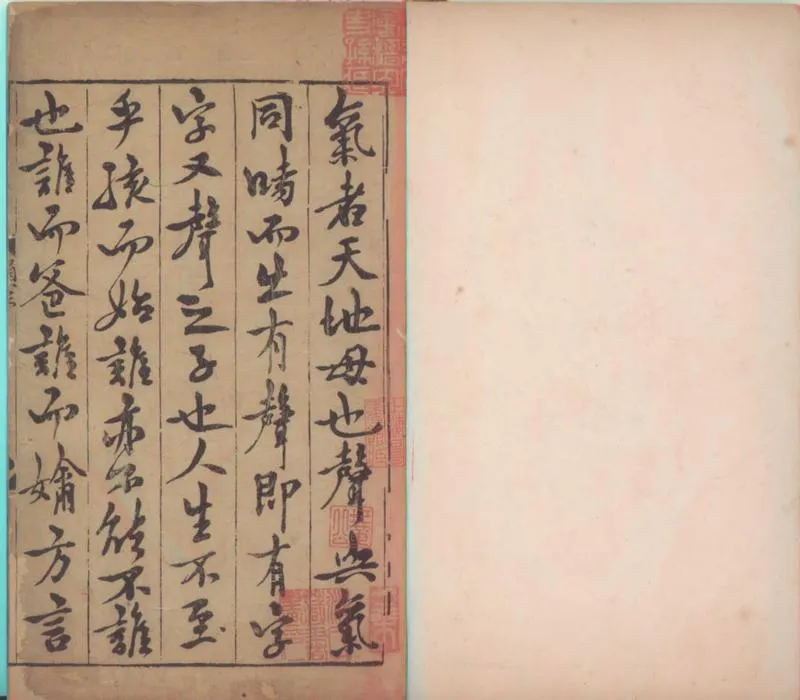 氣者天地母也聲與氣
同時而出有聲即有字
字又聲之子也人生不至
乎孩而始誰亦不能不誰
也誰而爸誰而嬭方言